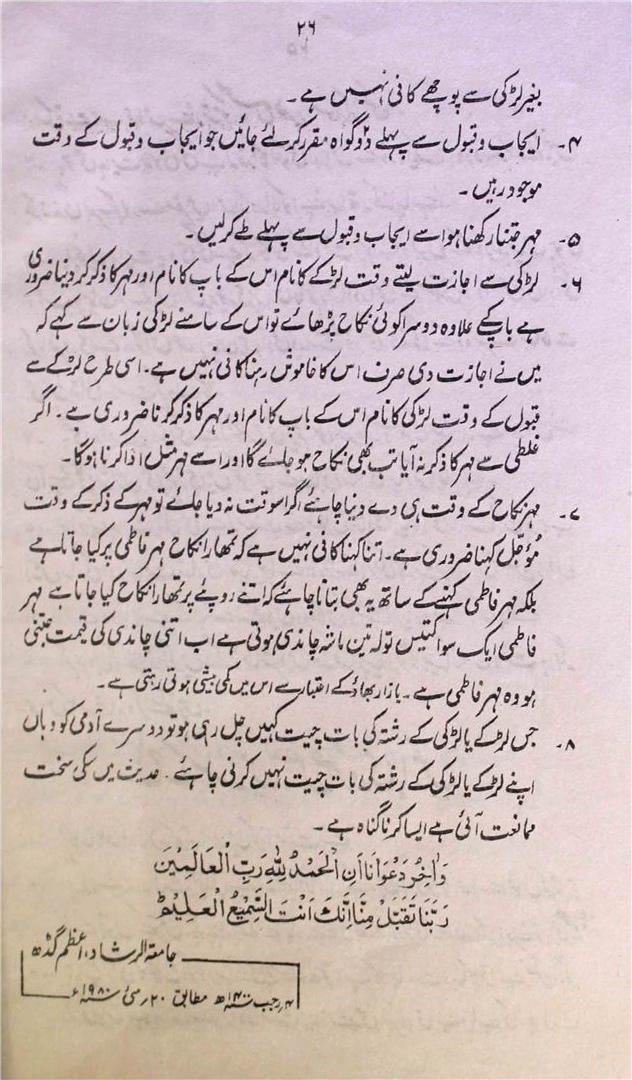 ۲۶
بغیر لڑکی سے پوچھے کافی نہیں ہے۔
۴۔ ایجاب وقبول سے پہلے دو گواہ مقرر کر لئے جائیں جو ایجاب وقبول کے وقت
موجود رہیں۔
۵۔ مہر جتنا رکھنا ہو اسے ایجاب وقبول سے پہلے طے کر لیں۔
۶۔ لڑکی سے اجازت لیتے وقت لڑکے کا نام اس کے باپ کا نام اور مہر کا ذکر کر دینا ضروری
ہے باپ کے علاوہ دوسرا کوئی نکاح پڑھائے تو اس کے سامنے لڑکی زبان سے کہے کہ
میں نے اجازت دی صرف اس کا خاموش رہنا کافی نہیں ہے۔ اسی طرح لڑکے سے
قبول کے وقت لڑکی کا نام اس کے باپ کا نام اور مہر کا ذکر کرنا ضروری ہے۔ اگر
غلطی سے مہر کا ذکر نہ آیا تب بھی نکاح ہو جائے گا اور اسے مہر مثل ادا کرنا ہوگا۔
۷۔ مہر نکاح کے وقت ہی دے دینا چاہئے اگر اسوقت نہ دیا جائے تو مہر کے ذکر کے وقت
مُؤجّل کہنا ضروری ہے۔ اتنا کہنا کافی نہیں ہے کہ تمھارا نکاح مہر فاطمی پر کیا جاتا ہے
بلکہ مہر فاطمی کہنے کے ساتھ یہ بھی بتانا چاہئے کہ اتنے روپئے پر تمھارا نکاح کیا جاتا ہے مہر
فاطمی ایک سو اکتیس تولہ تین ماشہ چاندی ہوتی ہے اب اتنی چاندی کی قیمت جتنی
ہو وہ مہر فاطمی ہے۔ بازار بھاؤ کے اعتبار سے اس میں کمی بیشی ہوتی رہتی ہے۔
۸۔ جس لڑکے یا لڑکی کے رشتہ کی بات چیت کہیں چل رہی ہو تو دوسرے آدمی کو وہاں
اپنے لڑکے یا لڑکی کے رشتہ کی بات چیت نہیں کرنی چاہئے۔ حدیث میں اسکی سخت
ممانعت آئی ہے ایسا کرنا گناہ ہے۔
وَاٰخِرُ دَعْوَانَا اَنِ الْحَمْدُ لِلّٰهِ رَبِّ الْعَالَمِيْنَ
رَبَّنَا تَقَبَّلْ مِنَّا اِنَّكَ اَنْتَ السَّمِيْعُ الْعَلِيْمُ
جامعۃ الرشاد، اعظم گڈھ
۴ رجب ۱۴۰۰ھ مطابق ۲۰ مئی ۱۹۸۰ء